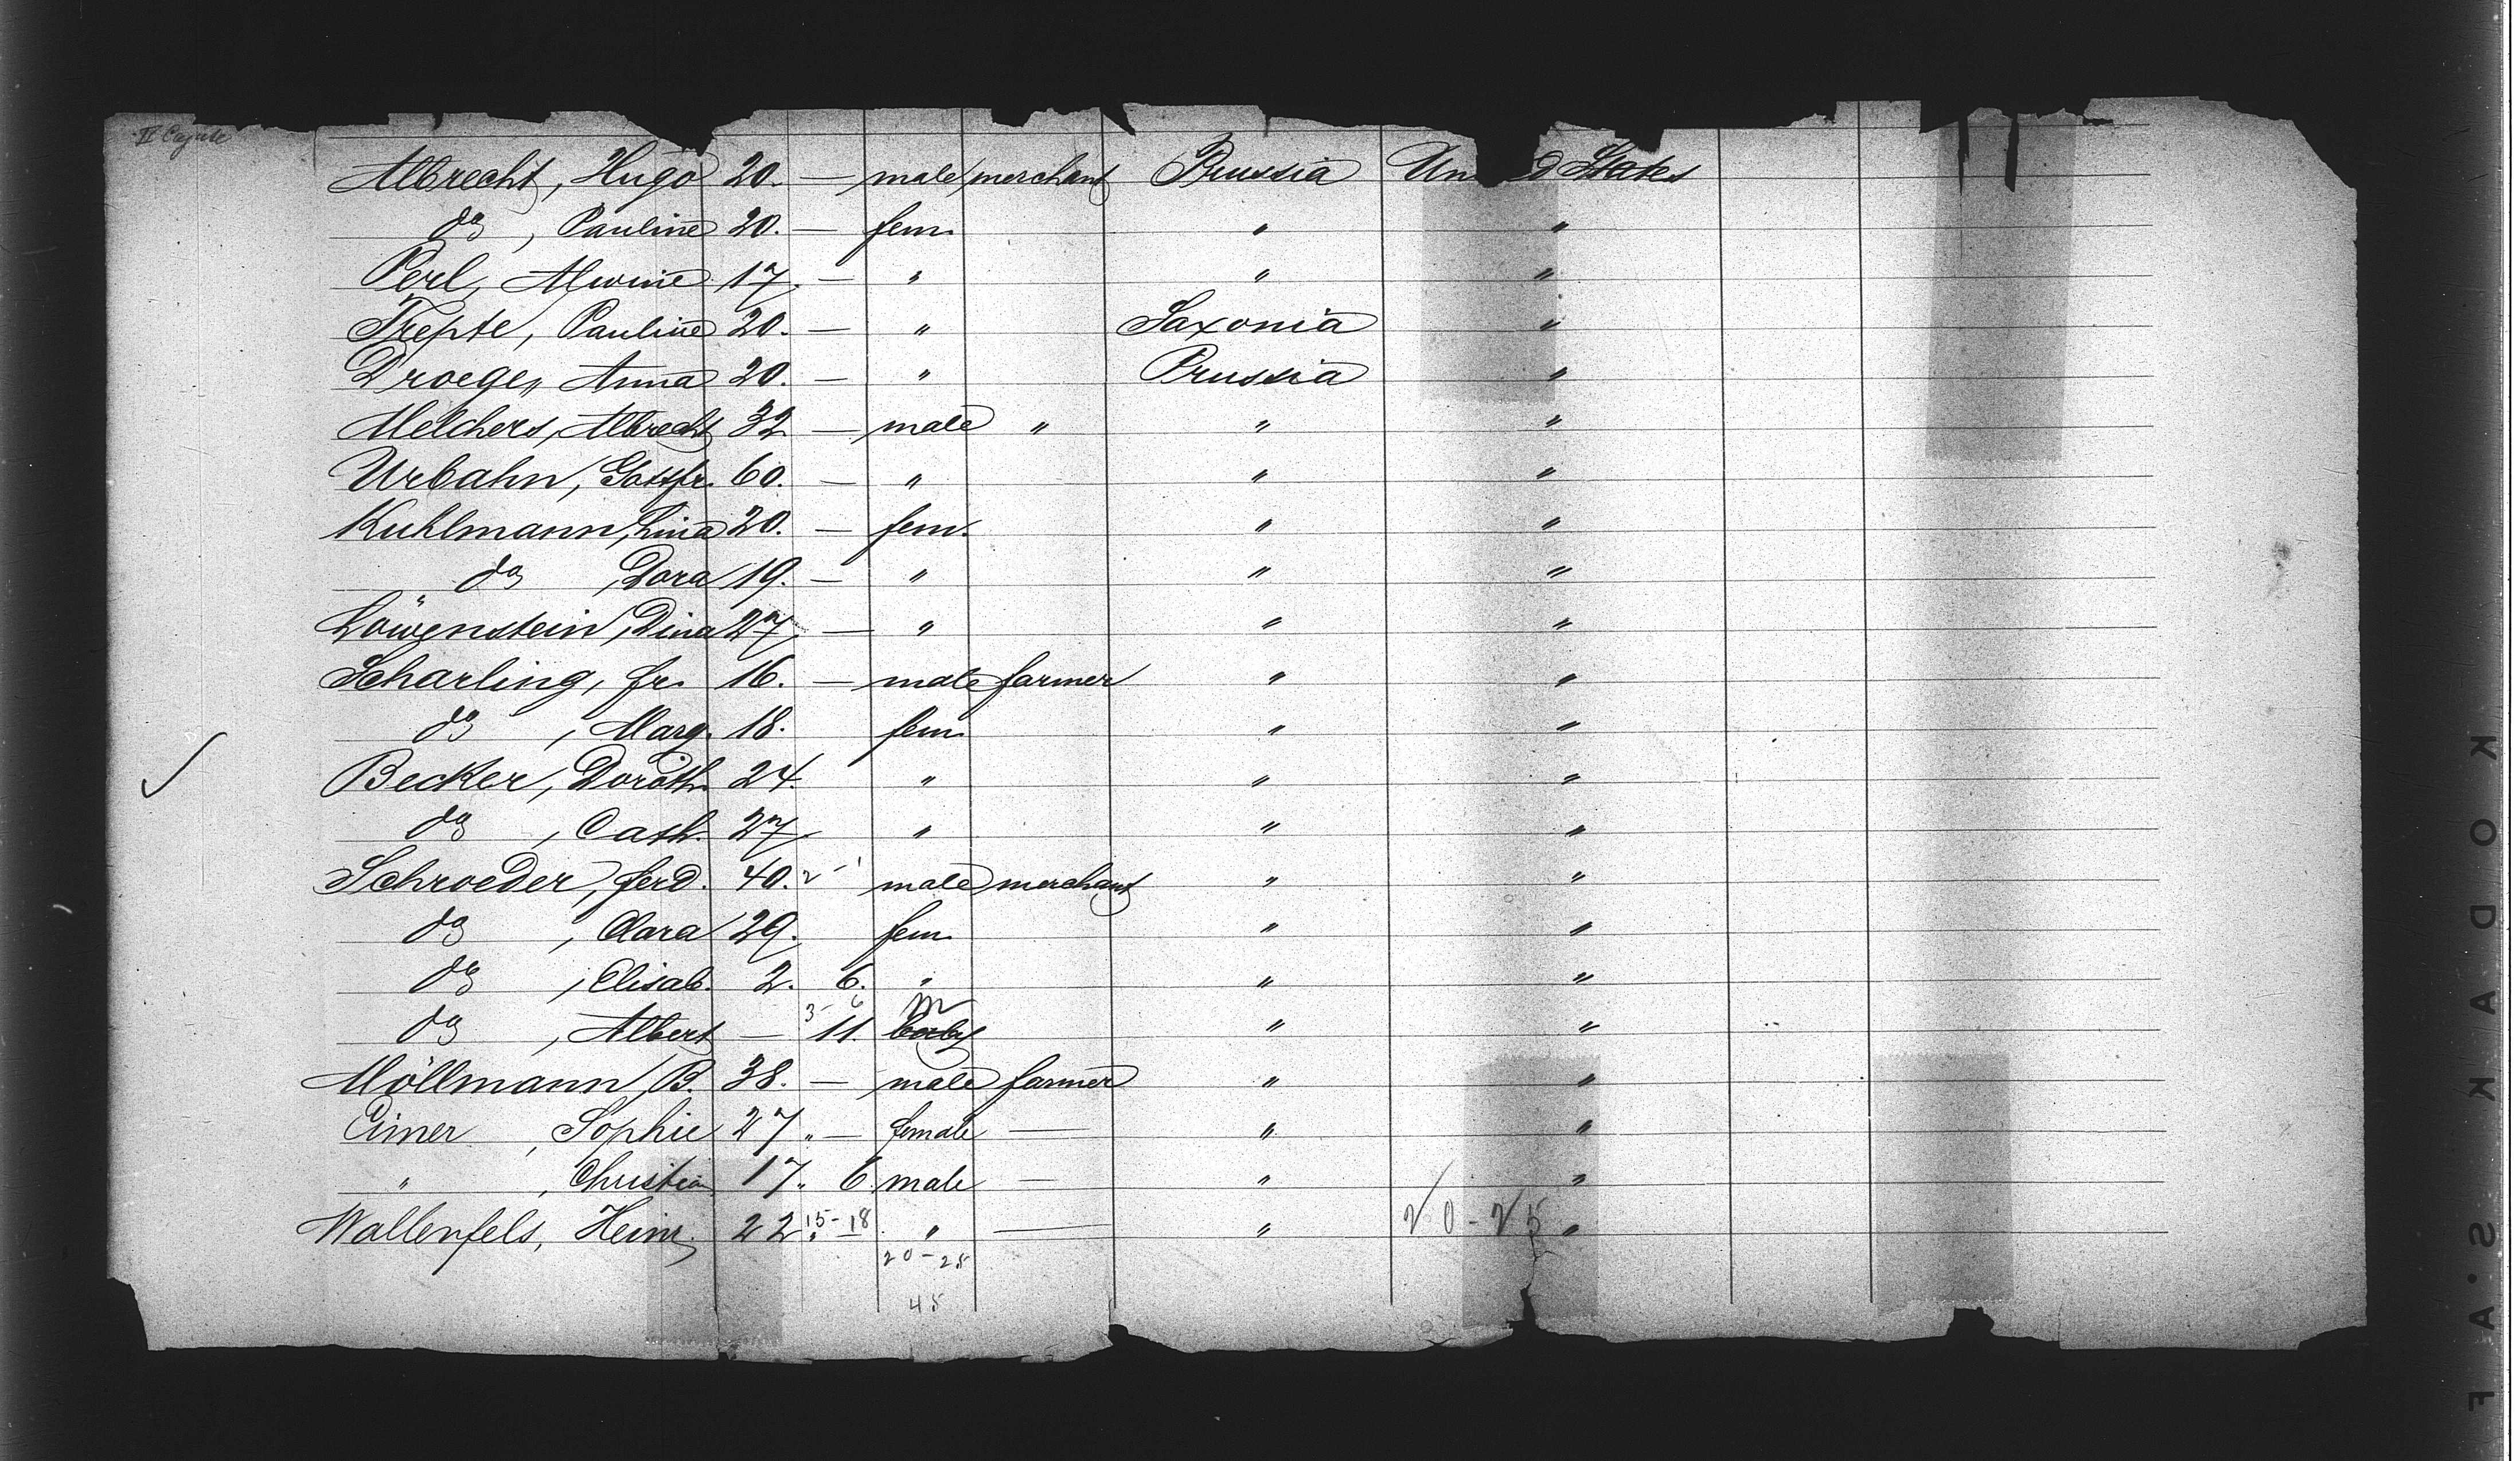 II Cajüte
Albrecht, Hugo 20. — male merchant Prussia Un d States
do , Pauline 20. — fem. " "
Perl, Alwine 17. — " " "
Trepte, Pauline 20. — " Saxonia "
Droege, Anna 20. — " Prussia "
Melchers, Albrecht 32 — male " " "
Urbahn, Gottfr. 60. — " " "
Kuhlmann, Lina 20. — fem. " "
do , Dora 19. — " " "
Löwenstein, Dina 27. — " " "
Scharling, fr. 16. — male farmer " "
do , Marg. 18. fem. " "
Becker, Doroth. 24. " " "
do , Cath. 27. " " "
Schroeder, ferd. 40. 2 1 male merchant " "
do , Clara 29. fem. " "
do , Elisab. 2. 6. " " "
do , Albert — 3 - 6 11. m baby " "
Möllmann, B. 38. — male farmer " "
Eimer , Sophie 27 " — female — " "
" , Christian 17. " 6. male — " "
Wallenfels, Heinr. 22 " 15-18 — " — " 20-25 "
20-25
45
KODAK S.AF